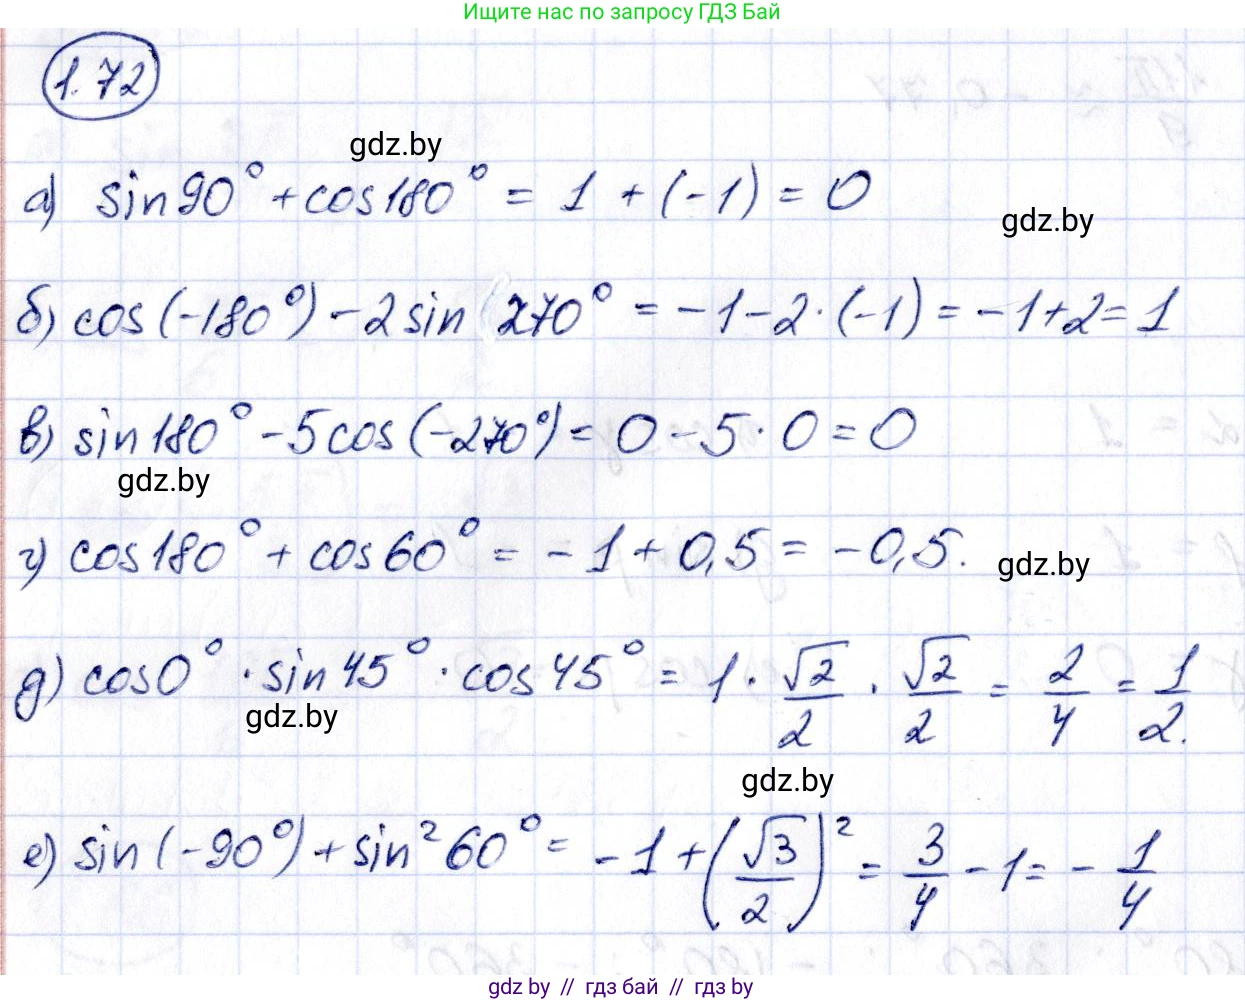 Ищите нас по запросу ГДЗ Бай
1.72
gdz.by
а) sin90° + cos180° = 1 + (-1) = 0
gdz.by
б) cos(-180°) - 2sin 270° = -1 - 2·(-1) = -1+2=1
в) sin180° - 5cos(-270°) = 0 - 5·0 = 0
gdz.by
г) cos180° + cos60° = -1 + 0,5 = -0,5.
gdz.by
д) cos0° · sin45° · cos45° = 1 · √2/2 · √2/2 = 2/4 = 1/2.
gdz.by
gdz.by
е) sin(-90°) + sin²60° = -1 + (√3/2)² = 3/4 - 1 = -1/4
gdz.by // гдз бай // гдз by